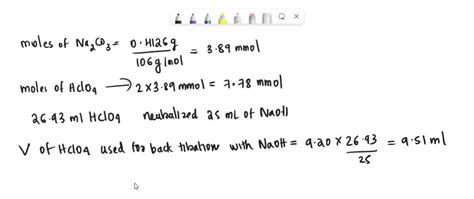 moles of Na₂CO₃ = 0.4126g / 106 g/mol = 3.89 mmol
moles of HClO₄ → 2 × 3.89 mmol = 7.78 mmol
26.93 ml HClO₄ neutralized 25 mL of NaOH
V of HClO₄ used for back titration with NaOH = 9.20 × 26.93 / 25 = 9.51 ml